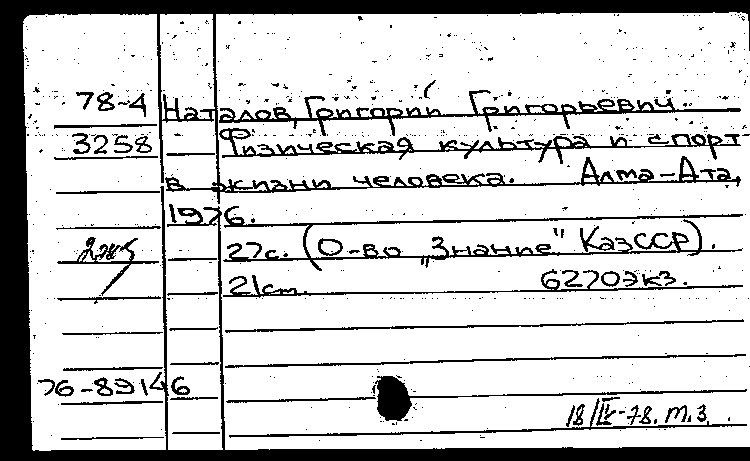 78-4 Наталов, Григорий Григорьевич.
3258 Физическая культура и спорт
в жизни человека. Алма-Ата,
1976.
2экз 27с. (О-во „Знание" КазССР).
21см. 6270экз.
76-89146
18/IV-78. т.з.